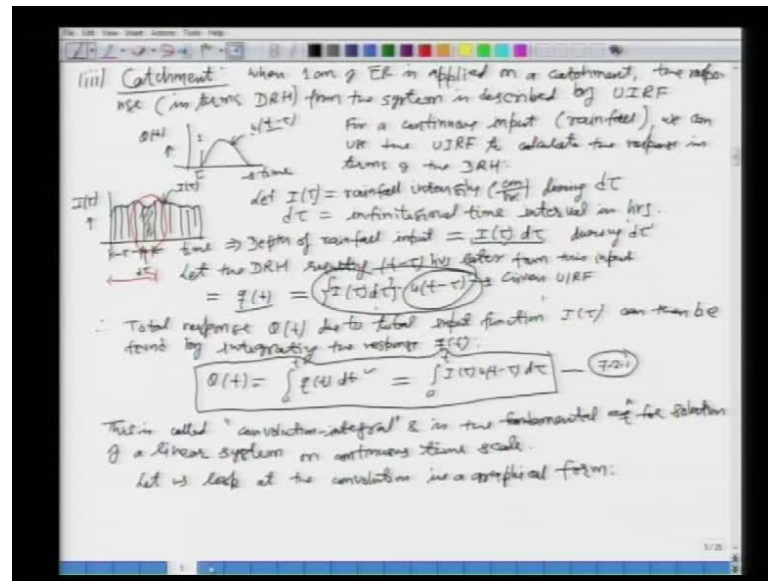 File Edit View Insert Actions Tools Help
(iii) Catchment: when 1 cm of ER is applied on a catchment, the respo-
nse (in terms DRH) from the system is described by UIRF
Q(t) u(t-τ) For a continuous input (rainfall) we can
use the UIRF to calculate the response in
τ → time terms of the DRH.
I(τ) I(τ) Let I(τ) = rainfall intensity (cm/hr) during dτ
dτ = infinitesimal time interval in hrs.
time ⇒ Depth of rainfall input = I(τ) dτ during dτ
τ dτ Let the DRH resulting (t-τ) hrs later from this input
= q(t) = {I(τ)dτ} u(t-τ) → Given UIRF
∴ Total response Q(t) due to total input function I(τ) can then be
found by integrating the response q(t).
Q(t) = ∫ q(t) dt = ∫₀ᵗ I(τ) u(t-τ) dτ —
This is called "convolution-integral" & is the fundamental eqⁿ for solution
of a linear system on continuous time scale.
Let us look at the convolution in a graphical form: